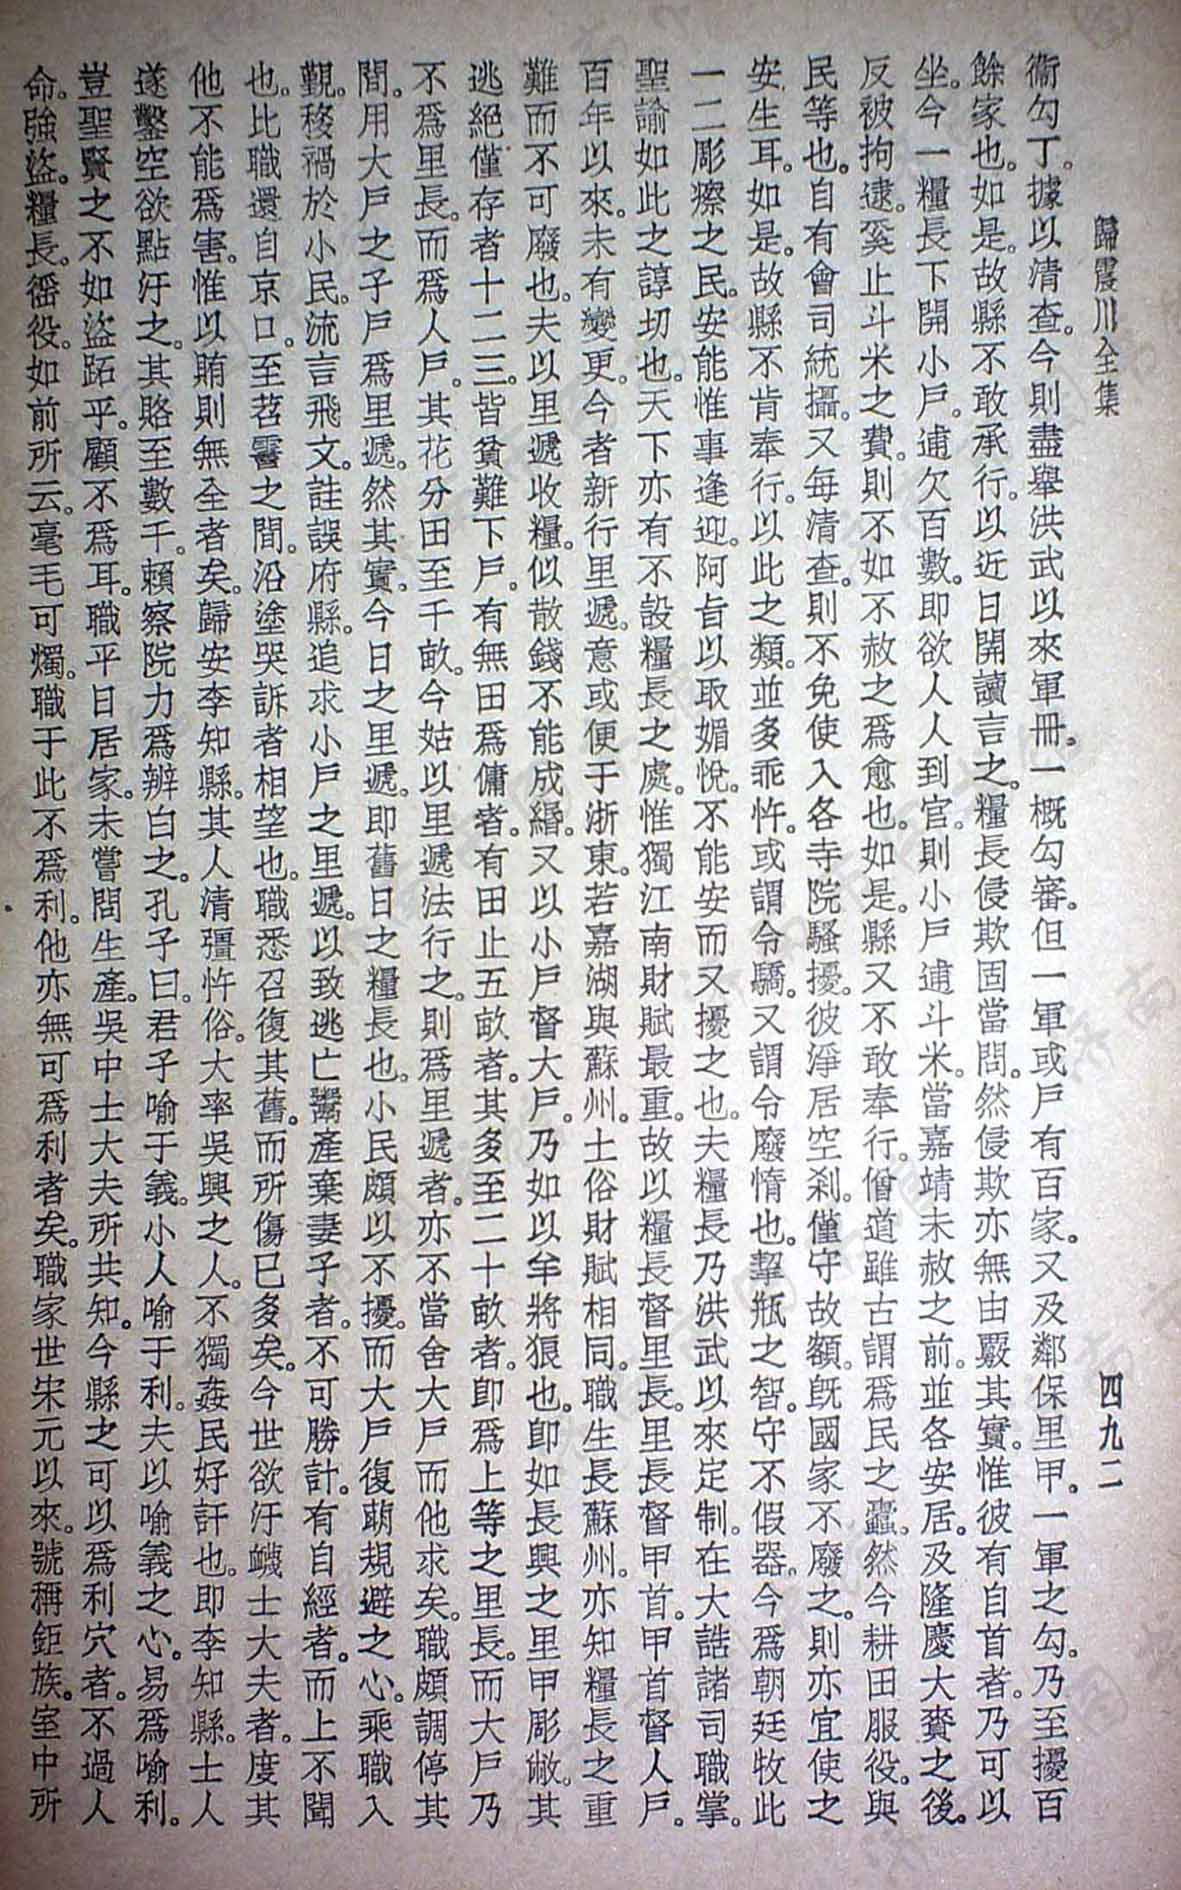 歸震川全集
四九二
衞勾丁。據以清查。今則盡舉洪武以來軍冊。一概勾審。但一軍或戶有百家。又及鄰保里甲。一軍之勾。乃至擾百
餘家也。如是。故縣不敢承行。以近日開讀言之。糧長侵欺固當問。然侵欺亦無由覈其實。惟彼有自首者。乃可以
坐。今一糧長下開小戶。逋欠百數。即欲人人到官。則小戶逋斗米。當嘉靖未赦之前。並各安居。及隆慶大賚之後。
反被拘逮。奚止斗米之費。則不如不赦之爲愈也。如是。縣又不敢奉行。僧道雖古謂爲民之蠹。然今耕田服役。與
民等也。自有會司統攝。又每清查。則不免使入各寺院騷擾。彼淨居空剎。僅守故額。旣國家不廢之。則亦宜使之
安生耳。如是。故縣不肯奉行。以此之類。並多乖忤。或謂令驕。又謂令廢惰也。挈瓶之智。守不假器。今爲朝廷牧此
一二彫瘵之民。安能惟事逢迎。阿旨以取媚悅。不能安而又擾之也。夫糧長乃洪武以來定制。在大誥諸司職掌。
聖諭如此之諄切也。天下亦有不設糧長之處。惟獨江南財賦最重。故以糧長督里長。里長督甲首。甲首督人戶。
百年以來。未有變更。今者新行里遞。意或便于浙東。若嘉湖與蘇州。土俗財賦相同。職生長蘇州。亦知糧長之重
難而不可廢也。夫以里遞收糧。似散錢不能成緡。又以小戶督大戶。乃如以羊將狼也。卽如長興之里甲彫敝。其
逃絕僅存者十二三。皆貧難下戶。有無田爲傭者。有田止五畝者。其多至二十畝者。卽爲上等之里長。而大戶乃
不爲里長。而爲人戶。其花分田至千畝。今姑以里遞法行之。則爲里遞者。亦不當舍大戶而他求矣。職頗調停其
間。用大戶之子戶爲里遞。然其實。今日之里遞。即舊日之糧長也。小民頗以不擾。而大戶復萌規避之心。乘職入
覲。移禍於小民。流言飛文。詿誤府縣。追求小戶之里遞。以致逃亡鬻產棄妻子者。不可勝計。有自經者。而上不聞
也。比職還自京口。至苕霅之間。沿塗哭訴者相望也。職悉召復其舊。而所傷已多矣。今世欲汙衊士大夫者。度其
他不能爲害。惟以賄則無全者矣。歸安李知縣。其人清彊忤俗。大率吳興之人。不獨姦民好訐也。即李知縣。士人
遂鑿空欲點汙之。其賂至數千。賴察院力爲辨白之。孔子曰。君子喻于義。小人喻于利。夫以喻義之心。易爲喻利。
豈聖賢之不如盜跖乎。顧不爲耳。職平日居家。未嘗問生產。吳中士大夫所共知。今縣之可以爲利穴者。不過人
命。強盜。糧長。徭役。如前所云。毫毛可燭。職于此不爲利。他亦無可爲利者矣。職家世宋元以來。號稱鉅族。室中所